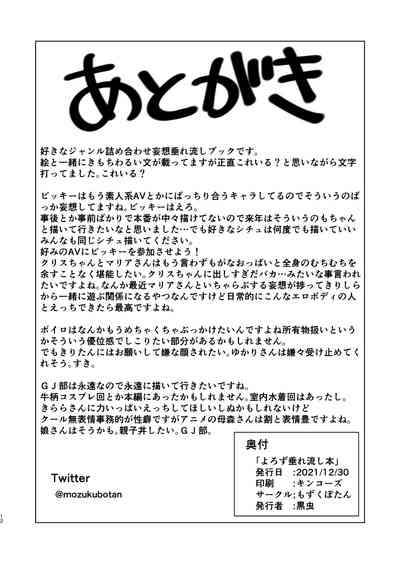 あとがき
好きなジャンル詰め合わせ妄想垂れ流しブックです。
絵と一緒にきもちわるい文が載ってますが正直これいる？と思いながら文字
打ってました。これいる？
ビッキーはもう素人系AVとかにばっちり合うキャラしてるのでそういうのば
っか妄想してますね。ビッキーはえろ。
事後とか事前ばかりで本番が中々描けてないので来年はそういうのもちゃん
と描いて行きたいなと思いました…でも好きなシチュは何度でも描いていい
みんなも同じシチュ描いてください。
好みのAVにビッキーを参加させよう！
クリスちゃんとマリアさんはもう言わずもがなおっぱいと全身のむちむちを
余すことなく堪能したい。クリスちゃんに出しすぎだバカ…みたいな事言われ
たいですよね。なんか最近マリアさんといちゃらぶする妄想が捗ってきりしら
から一緒に遊ぶ関係になるやつなんですけど日常的にこんなエロボディの人
とえっちできたら最高ですよね。
ボイロはなんかもうめちゃくちゃぶっかけたいんですよね所有物扱いという
かそういう優位感でしこりたい部分があるかもしれません。
でもきりたんにはお願いして嫌な顔されたい。ゆかりさんは嫌々受け止めてく
れそう。すき。
GJ部は永遠なので永遠に描いて行きたいですね。
牛柄コスプレ回とか本編にあったかもしれません。室内水着回はあったし。
きららさんに力いっぱいえっちしてほしいしぬかもしれないけど
クール無表情事務的が性癖ですがアニメの母森さんは割と表情豊ですよね。
娘さんはそうかも。親子丼したい。GJ部。
Twitter
@mozukubotan
奥付
「よろず垂れ流し本」
発行日　:2021/12/30
印刷　　:キンコーズ
サークル:もずくぼたん
発行者　:黒虫